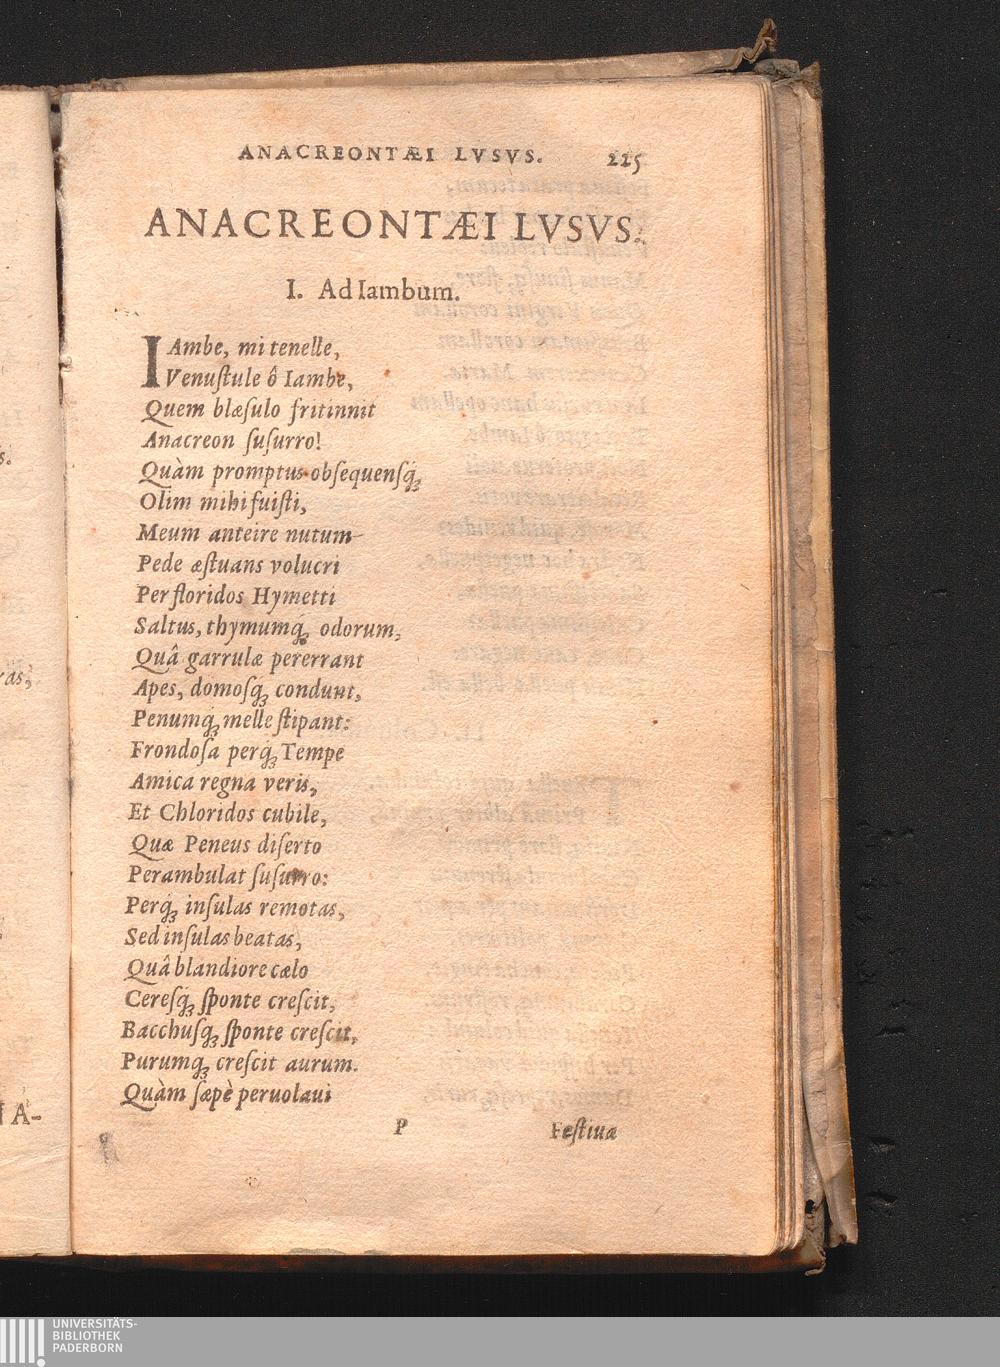 ANACREONTÆI LVSVS. 225
ANACREONTÆI LVSVS.
I. Ad Iambum.
IAmbe, mi tenelle,
Venuſtule ô Iambe,
Quem blæſulo fritinnit
Anacreon ſuſurro!
Quàm promptus obſequensq́;
Olim mihi fuiſti,
Meum anteire nutum
Pede æſtuans volucri
Per floridos Hymetti
Saltus, thymumq́; odorum,
Quâ garrulæ pererrant
Apes, domoſq́; condunt,
Penumq́; melle ſtipant:
Frondoſa perq́; Tempe
Amica regna veris,
Et Chloridos cubile,
Quæ Peneus diſerto
Perambulat ſuſurro:
Perq́; inſulas remotas,
Sed inſulas beatas,
Quâ blandiore cælo
Cereſq́; ſponte creſcit,
Bacchuſq́; ſponte creſcit,
Purumq́; creſcit aurum.
Quàm ſæpè peruolaui
P Feſtiua
s.
ras,
A-
UNIVERSITÄTS-
BIBLIOTHEK
PADERBORN